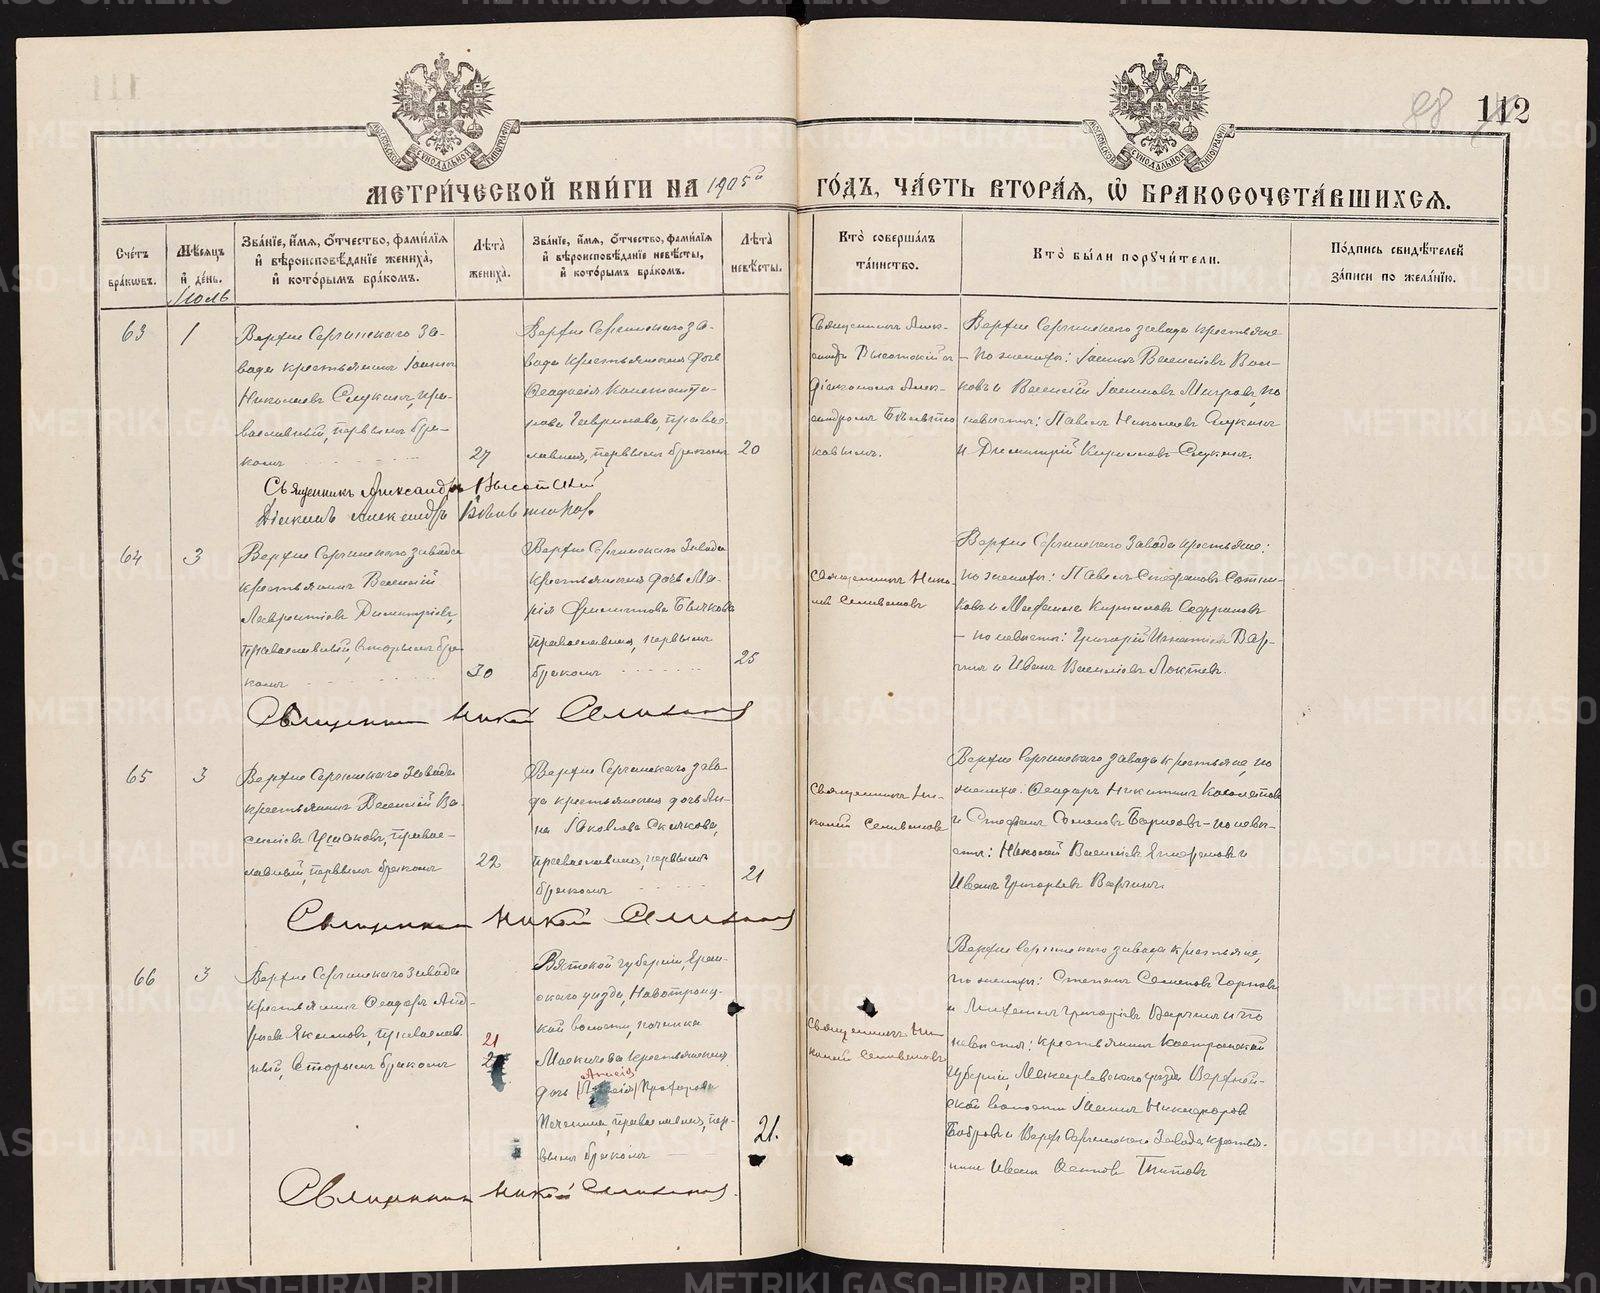 112
88
МЕТРИ́ЧЕСКОЙ КНИ́ГИ НА 1905й ГО́ДЪ, ЧА́СТЬ ВТОРА́Я, Ѡ БРАКОСОЧЕТА́ВШИХСЯ.
Сче́тъ бра́кѡвъ.
Мѣ́сяцъ и де́нь.
Зва́нїе, и́мя, о́тчество, фами́лїя и вѣроисповѣ́данїе жениха̀, и кото́рымъ бра́комъ.
Лѣта̀ жениха̀.
Зва́нїе, и́мя, о́тчество, фами́лїя и вѣроисповѣ́данїе невѣ́сты, и кото́рымъ бра́комъ.
Лѣта̀ невѣ́сты.
Кто̀ соверша́лъ та́инство.
Кто̀ бы́ли пору́чи́тели.
По́дпись свидѣ́телей за́писи по жела́нїю.
Іюль
63
1
Верхне Сергинскаго за-
вода крестьянинъ Іоаннъ
Николаевъ Слукинъ, пра-
вославный, первымъ бра-
комъ
27
Верхне Сергинскаго за-
вода крестьянская дочь
Гаврилова, правос-
лавная, первымъ бракомъ
20
Священникъ Алек-
сандръ Высотскій съ
діакономъ Алек-
сандромъ
Верхне Сергинскаго завода крестьяне
– по женихѣ: Іоаннъ
и Василій Іоанновъ по
невѣстѣ: Павелъ Николаевъ Слукинъ
и Димитрій Кирилловъ Слукинъ.
Священникъ Александръ Высотскій
Діаконъ Александръ
64
3
Верхне Сергинскаго завода
крестьянинъ Василій
Лаврентіевъ Димитріевъ,
православный, вторымъ бра-
комъ
30
Верхне Сергинскаго завода
крестьянская дочь Ма-
рія Филиппова Бычкова
православная, первымъ
бракомъ
25
Священникъ Нико-
лай Селивановъ
Верхне Сергинскаго завода крестьяне:
по женихѣ: Павелъ Стефановъ Сотни-
ковъ и Кирилловъ
– по невѣстѣ: Григорій Игнатіевъ Вар-
гинъ и Иванъ Василіевъ Локтевъ.
Священникъ Николай Селивановъ
65
3
Верхне Сергинскаго завода
крестьянинъ Василій Ва-
силіевъ Ушаковъ, правос-
лавный, первымъ бракомъ
22
Верхне Сергинскаго заво-
да крестьянская дочь Ан-
на Іаковлева Скачкова,
православная, первымъ
бракомъ
21
Священникъ Ни-
колай Селивановъ
Верхне Сергинскаго завода крестьяне, по
женихѣ: Ѳеодоръ Никитинъ
и Стефанъ Семеновъ Борисовъ – по невѣ-
стѣ: Николай Василіевъ и
Иванъ Григорьевъ Варгинъ.
Священникъ Николай Селивановъ
66
3
Верхне Сергинскаго завода
крестьянинъ Ѳеодоръ Анд-
реевъ Якимовъ, православ-
ный, вторымъ бракомъ
21
Вятской губерніи, Яран-
скаго уѣзда, Новотроиц-
кой волости, починка
крестьянская
дочь Прохорова
Печенина, православная, пер-
вымъ бракомъ
21.
Священникъ Ни-
колай Селивановъ
Верхне Сергинскаго завода крестьяне,
по женихѣ: Степанъ Семеновъ Горновъ
и Григоріевъ Варгинъ и по
невѣстѣ: крестьянинъ Костромской
губерніи, Макарьевскаго уѣзда
ской волости Іоаннъ Никифоровъ
Бобровъ и Верхне Сергинскаго завода крестья-
нинъ Иванъ Осиповъ Титовъ
Священникъ Николай Селивановъ
METRIKI.GASO-URAL.RU